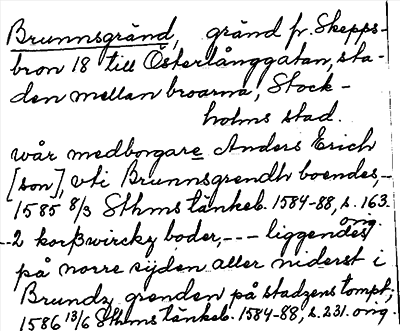 Brunnsgränd, gränd fr. Skepps-
bron 18 till Österlånggatan, sta-
den mellan broarna, Stock-
holms stad.
wår medborgare Anders Erich
[son], vti Brunnsgrendh boendes,-
1585 8/3 Sthms tänkeb. 1584-88, s. 163.
--2 korßwircky boder, --- liggendes
ong.
på norre sijden aller niderst i
Brundz grenden på stadzens tompt;
1586 13/6 Sthms tänkeb. 1584-88, s. 231. ong.